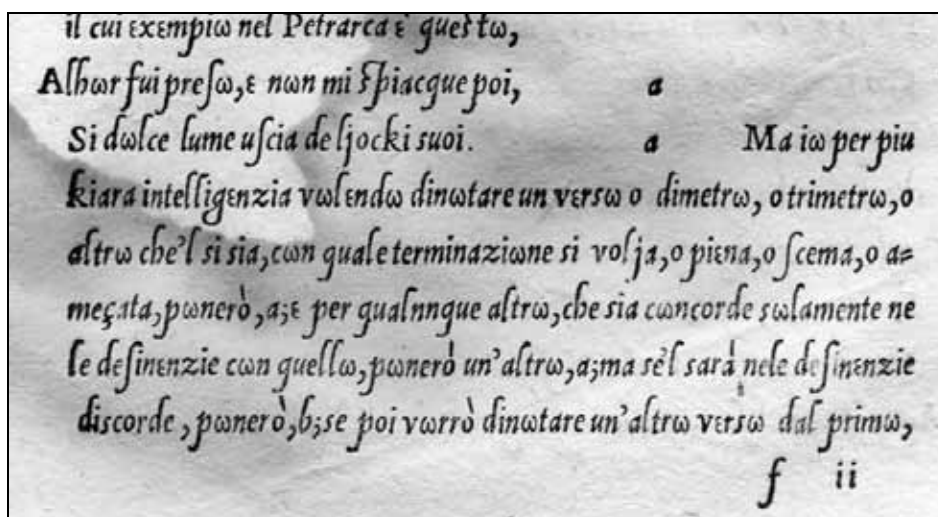 il cui εxεmpiω nel Petrarca ὲ questω,
Alhωr fui preſω, ε nωn mi ſpiacque poi, a
Si dωlce lume uſcia de ljocki suoi. a Ma iω per piu
kiara intelligεnzia vωlεndω dinωtare un vεrsω o dimetrω, o trimetrω, o
altrω che'l si sia, cωn quale terminaziωne si volja, o piεna, o ſcema, o a=
meçata, pωnerò, a; ε per qualnnque altrω, che sia cωncorde sωlamente ne
le deſinεnzie cωn quellω, pωnerò un'altrω, a; ma se'l sarà nele deſinεnzie
discorde, pωnerò, b; se poi vωrrò dinωtare un'altrω vεrsω dal primω,
f ii